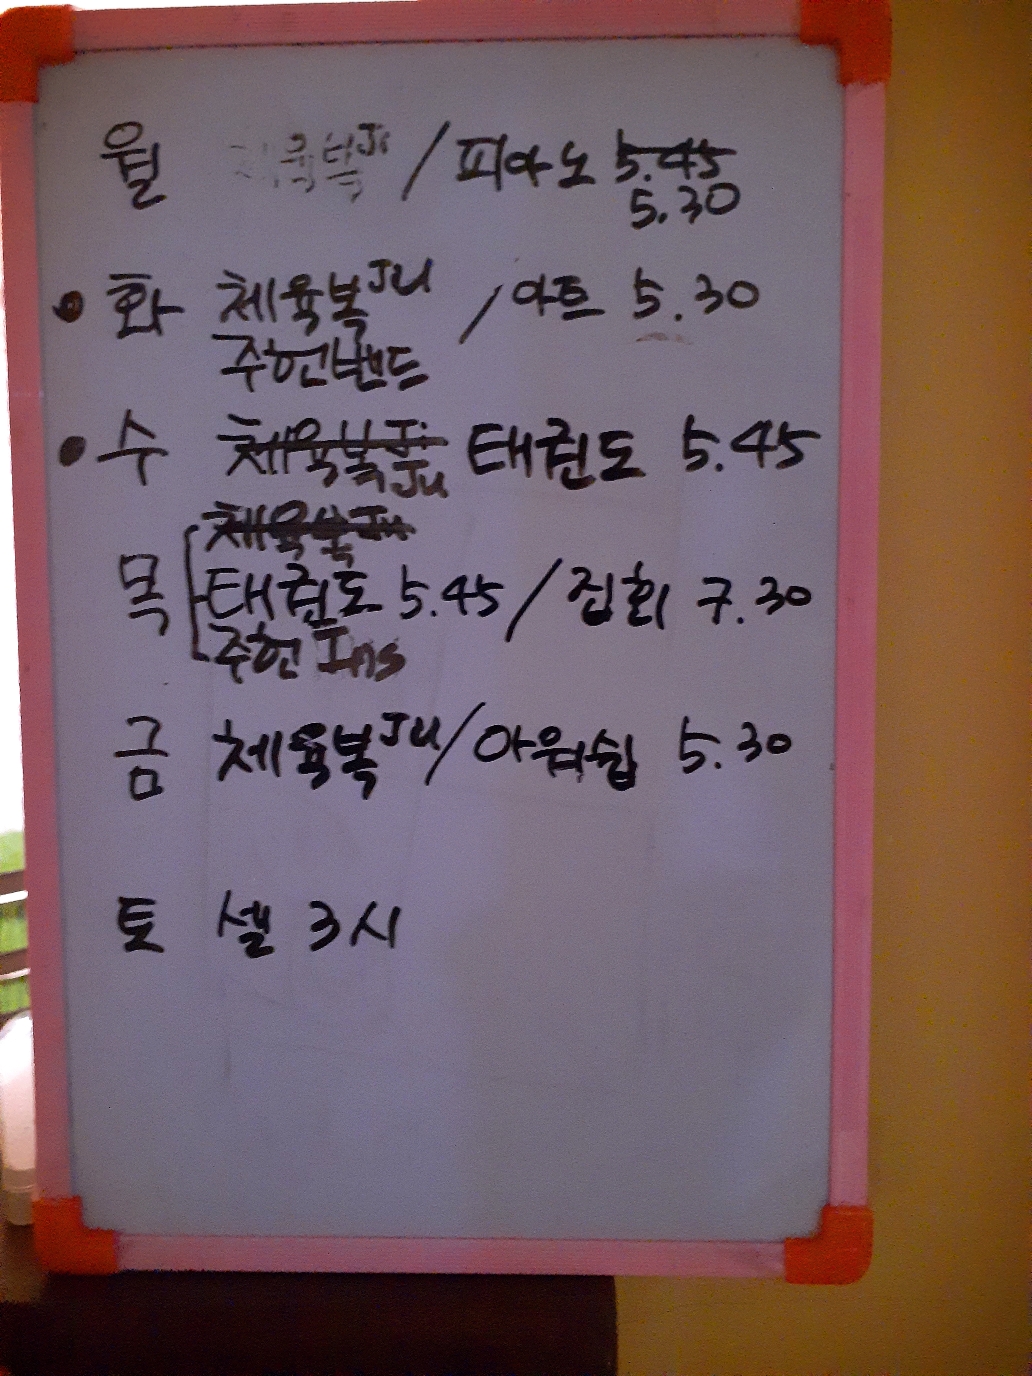 월 체육복 Ji / 피아노 5.45
5.30
화 체육복 JU / 아트 5.30
주헌밴드
수 체육복 Ji 태권도 5.45
JU
체육복 Ju
목 태권도 5.45 / 집회 7.30
주헌 Ins
금 체육복 JU / 아워쉽 5.30
토 셀 3시